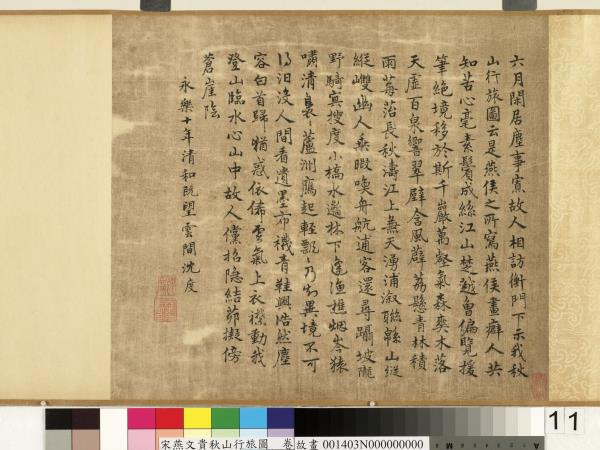 六月閑居塵事寡故人相訪衡門下示我秋
山行旅圖云是燕侯之所寫燕侯畫癖人共
知苦心毫素鬢成絲江山楚越曾徧覽援
筆絕境移於斯千巖萬壑氣森爽木落
天虛百泉響翠壁含風薜荔懸青林積
雨莓苔長秋濤江上無天湧浦溆聯緜山縱
縱雙幽人乘暇喚舟航逋客還尋躡坡隴
野騎冥搜度小橋水邊林下逢漁樵烟岑猿
嘯清裊裊蘆洲鴈起輕飄飄乃知異境不可
得汩沒人間看遺墨布襪青鞋興浩然塵
容白首歸猶惑依俙雲氣上衣襟動我
登山臨水心山中故人儻招隱結茆擬傍
蒼崖陰
永樂十年清和既望雲間沈度
11
宋燕文貴秋山行旅圖 卷 故畫 001403N000000000